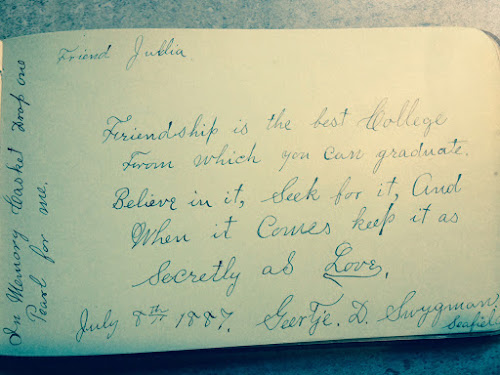 Friend Jullia
Friendship is the best College
From which you can graduate.
Believe in it, Seek for it, And
When it Comes keep it as
Secretly as Love.
July 8th 1887. Geertje. D. Swygman,
In Memory Casket Drop one
Pearl for me.